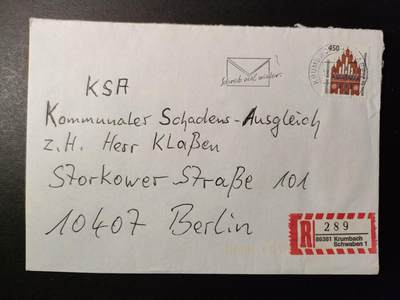 Schreib mal wieder!
450
KSA
Kommunaler Schadens-Ausgleich
z.H. Herr Klaßen
Storkower Straße 101
10407 Berlin
R 289
86381 Krumbach
Schwaben 1